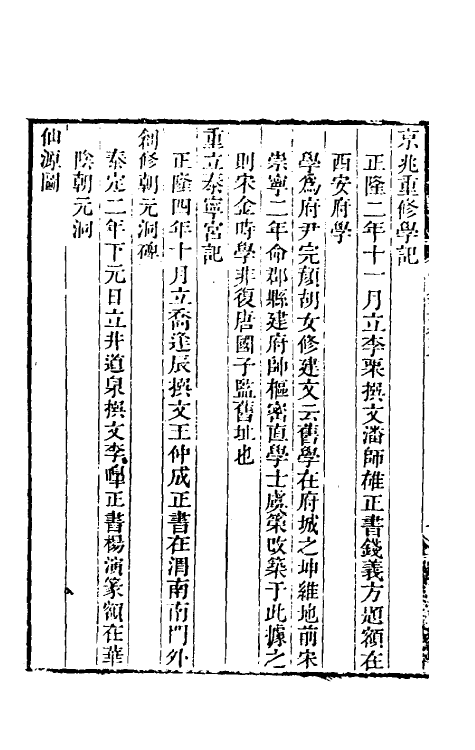 京兆重修學記
正隆二年十一月立李㮚撰文潘師雄正書錢義方題額在
西安府學
學爲府尹完顏胡女修建文云舊學在府城之坤維地前宋
崇寧二年命郡縣建府帥樞密直學士虞策改築于此據之
則宋金時學非復唐國子監舊址也
重立泰寧宮記
正隆四年十月立喬逢辰撰文王仲成正書在渭南南門外
創修朝元洞碑
泰定二年下元日立井道泉撰文李㬇正書楊演篆額在華
陰朝元洞
仙源圖